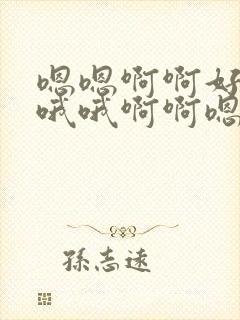 嗯嗯啊啊好
哦哦啊啊嗯
孫志遠